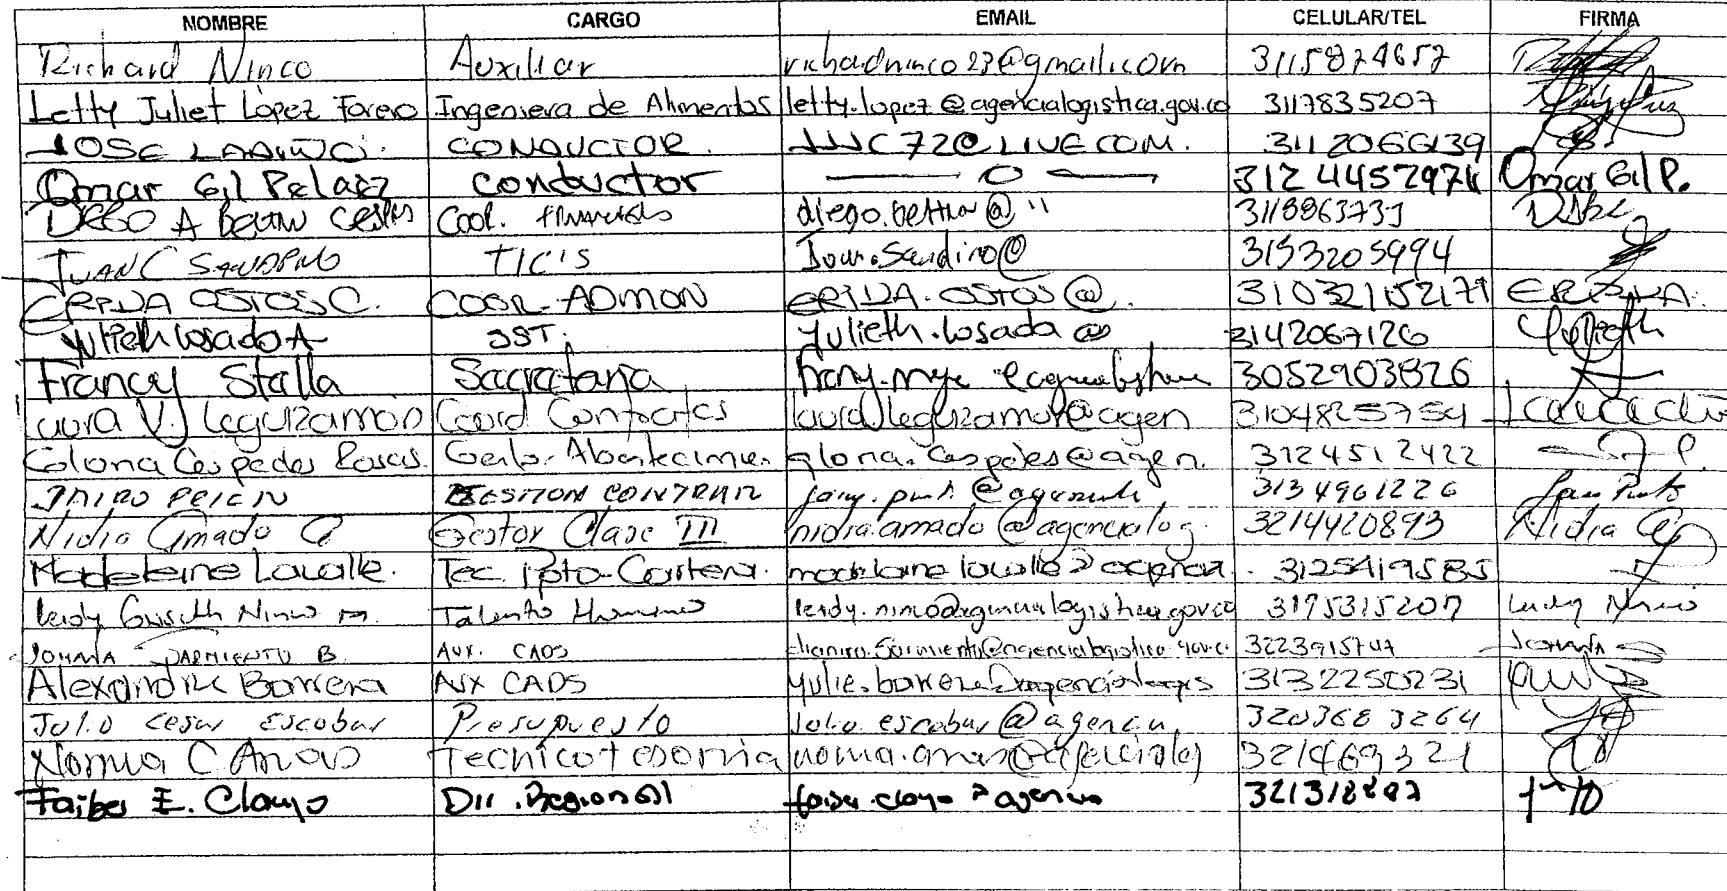 NOMBRE CARGO EMAIL CELULAR/TEL FIRMA
Richard Ninco Auxiliar richadninco23@gmail.com 3115874657
Letty Juliet López Forero Ingeniera de Alimentos letty.lopez@agencialogistica.gov.co 3117835207
JOSE LADINO CONDUCTOR. JJJC72@LIVE.COM. 3112066139
Omar Gil Pelaez Conductor — 0 — 3124457974 Omar Gil P.
DIEGO A Coor. diego.beltran@ " 3118863733
JUAN C SANDINO TICIS Juan.Sandino@ 3153205994
ERIKA OSTOS C. COOR-ADMON ERIKA.OSTOS@. 3103211521 ERIKA.
Yulieth Losada A SST. Yulieth.losada@ 3142067126 Yulieth
Francy Stella Secretaria 3052903826
Laura V. Leguizamón Coord Contratos laura.leguizamon@agen 3104825754
Gloria Cespedes Rosas. Gestor. Abastecimie. gloria.cespedes@agen. 3124512422
GESTION CONTRAT 3134961226
Nidia Amado G Gestor Clase III nidia.amado@agencialog. 3214420893 Nidia
Madeleine Lavalle. Tec. Ppto-Cartera. madeleine lavalle@agencia. 3125419585
Leidy Ninco M. Talento Humano leidy.ninco@agencialogistica.gov.co 3175315207 Leidy Ninco
JOHANA SARMIENTO B. AUX. CADS 3223915747 Johana
Alexandra Barrera AUX CADS yulie.barrera@agencialogis 3132250231
Julio cesar Escobar Presupuesto Julio.escobar@agencia 3203683264
Norma C Arias Tecnico tesoria norma.arias@agencialog 321469321
Faiber E. Clavijo Dir. Regional 321318897